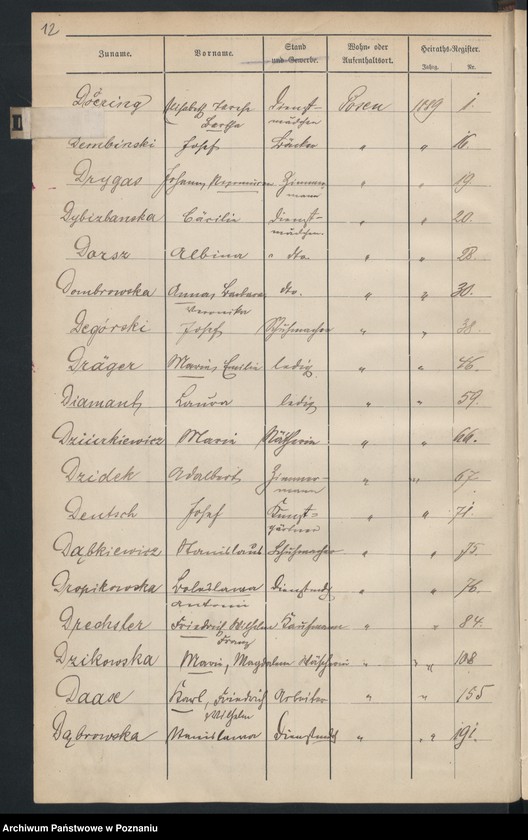 12
Zuname. Vorname. Stand und Gewerbe. Wohn- oder Aufenthaltsort. Heiraths-Register. Jahrg. Nr.
Döering Elisabeth Bertha Dienst- mädchen Posen 1889 1.
Dembinski Josef Bäcker " " 16.
Drygas Johann, Zimmer- mann " " 19.
Dybizbanska Cäcilie Dienst- mädchen " " 20.
Dorsz Albina " dto. " " 28.
Dombrowska Anna, Barbara Veronika dto. " " 30.
Degórski Josef Schuhmacher " " 38.
Dräger Marie, Emilie ledig " " 46.
Diamant, Laura ledig " " 59.
Dziurkiewicz Marie Nätherin " " 66.
Dzidek Adalbert Zimmer- mann " " 67.
Deutsch Josef Kunst- gärtner " " 71.
Dąbkiewicz Stanislaus Schuhmacher " " 75.
Dropikowska Boleslawa Antonie Dienstmdch " " 76.
Drechsler Friedrich Wilhelm Franz Kaufmann " " 84.
Dzikowska Marie, Magdalena Wäscherin " " 108.
Daase Karl, Friedrich Wilhelm Arbeiter " " 155
Dąbrowska Stanislawa Dienstmdch " " 191.
Archiwum Państwowe w Poznaniu